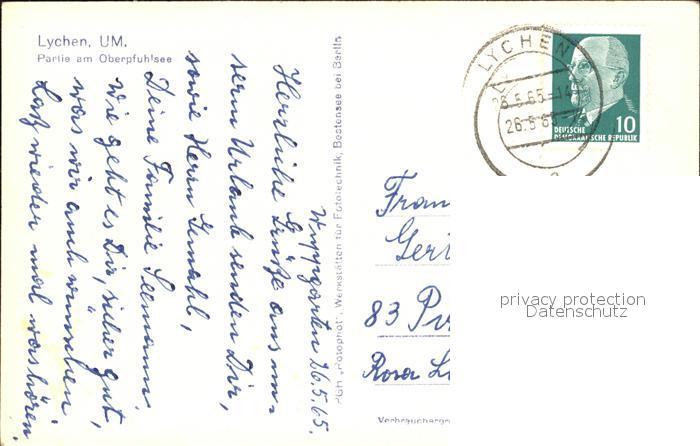 Lychen, UM.
Partie am Oberpfuhlsee
Wuppgarten 26.5.65.
Herzliche Grüße aus un-
serm Urlaub senden Dir,
sowie Herrn Gemahl,
Deine Familie Seemann.
Wie geht es Dir, sicher gut,
was wir auch wünschen
Laß wieder mal was hören.
PGH „Rotophot", Werkstätten für Fototechnik, Bestensee bei Berlin
LYCHEN
26.5.65-14
26.5.65
10
DEUTSCHE
DEMOKRATISCHE REPUBLIK
83
Rosa
privacy protection
Datenschutz